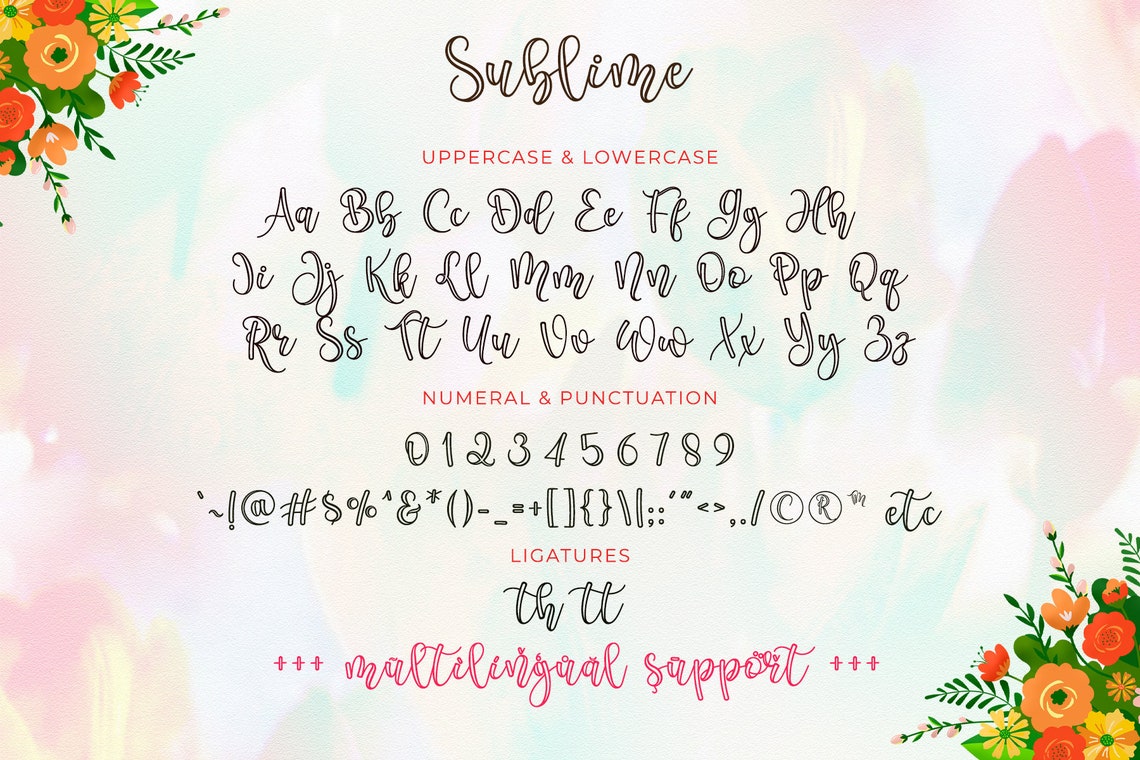 Sublime
UPPERCASE & LOWERCASE
Aa Bb Cc Dd Ee Ff Gg Hh
Ii Jj Kk Ll Mm Nn Oo Pp Qq
Rr Ss Tt Uu Vv Ww Xx Yy Zz
NUMERAL & PUNCTUATION
0 1 2 3 4 5 6 7 8 9
`~!@#$%^&*()-_=+[]{}\|;:'"<>,./©®™ etc
LIGATURES
th tt
+++ multilingual support +++